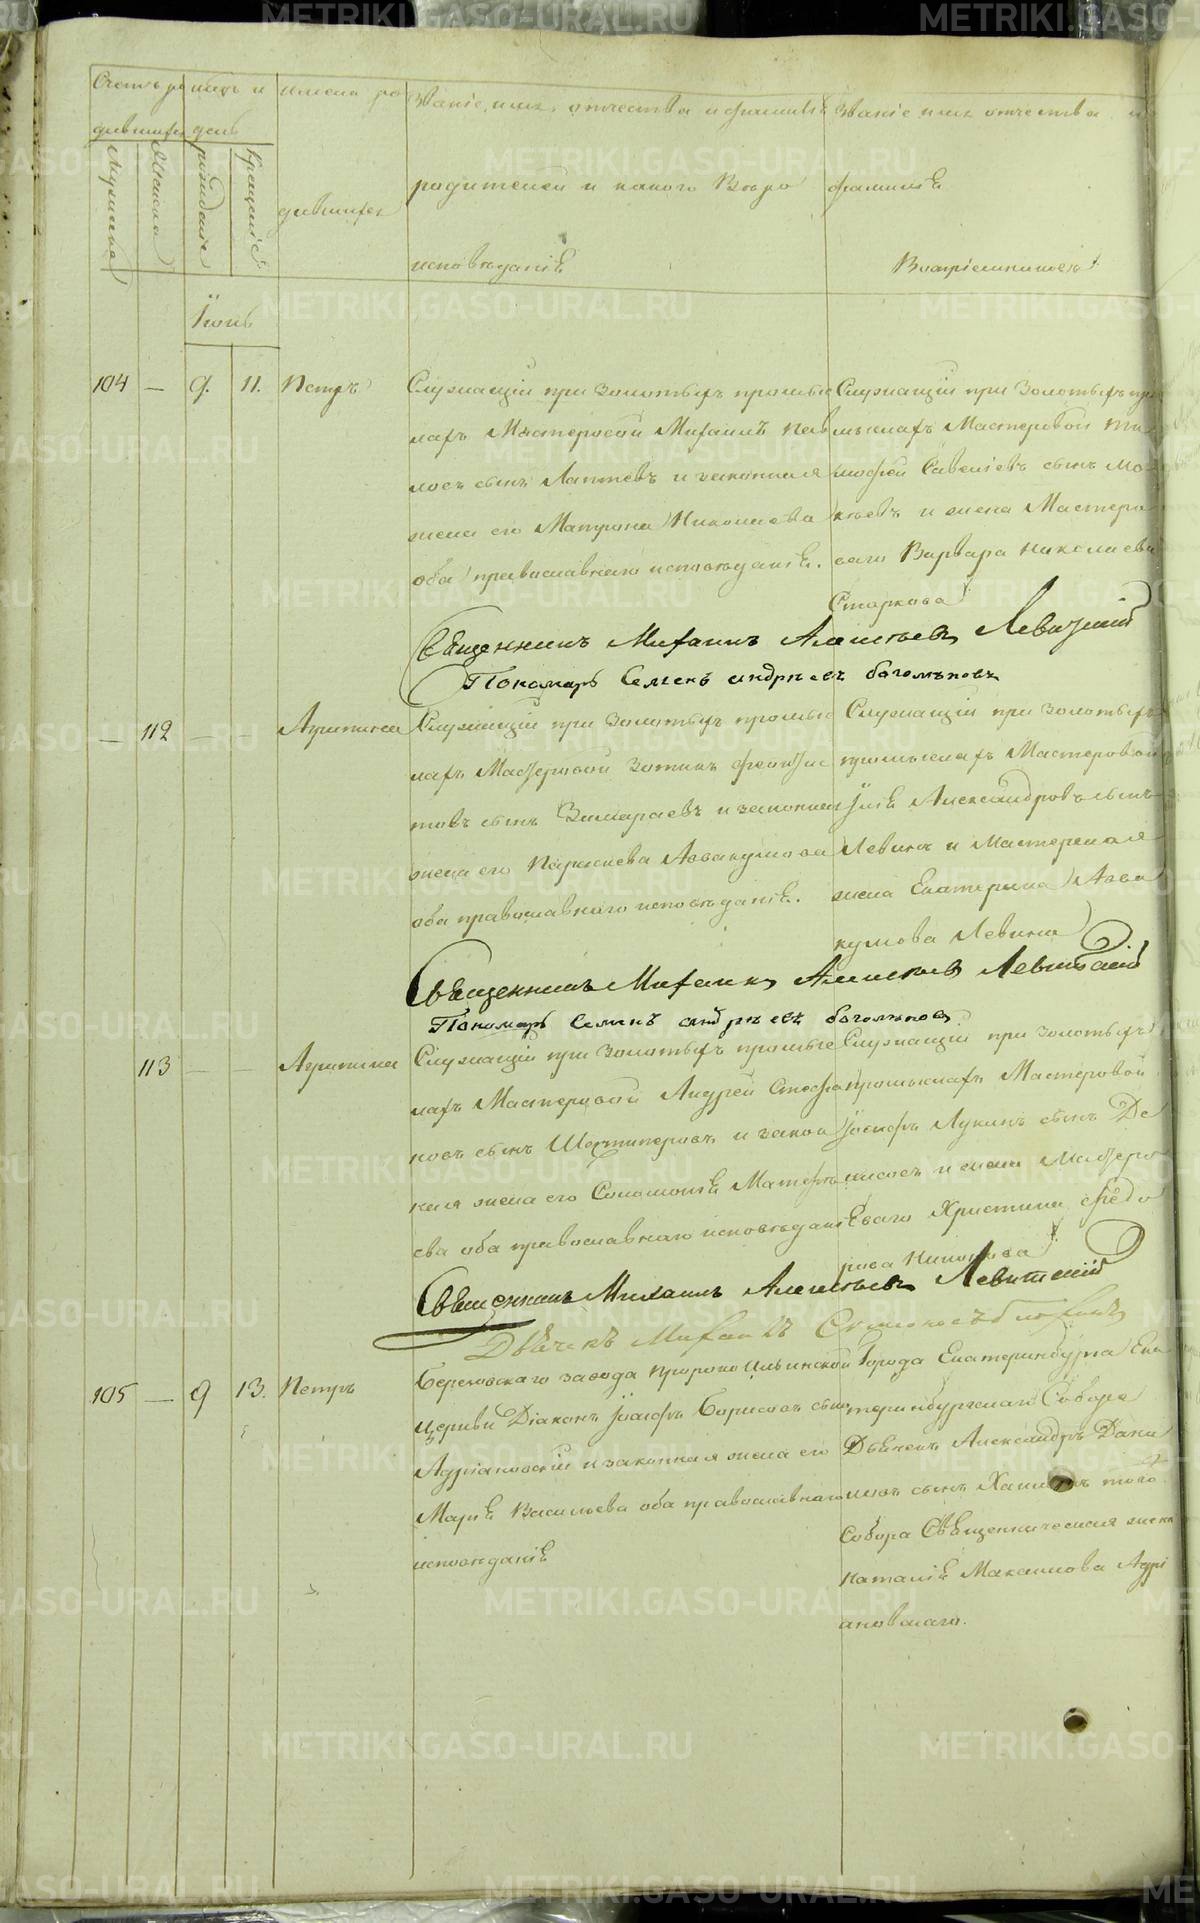 Счетъ ро
дившихся
мѣсяцъ и
день
имена ро
дившихся
Званіе, имя, отчества и фамиліѣ
родителей и какого Вѣро
исповѣданіѣ
Званіе имя отчества и
фамиліѣ
Воспріемниковъ
Мужеска
Женска
рожденіе
Крещеніѣ
Іюнь
104 — 9. 11. Петръ
Служащій при Золотыхъ промыс
лахъ Мастеровой Михаилъ Пав
ловъ сынъ Лаптевъ и законная
жена его Матрона Николаева
оба православнаго исповѣданіѣ.
Служащій при Золотыхъ про
мыслахъ Мастеровой Ти
мофей Савеліевъ сынъ Мо
кѣевъ и жена Мастеро
ваго Варвара Николаева
Старкова
Священникъ Михаилъ Алексѣевъ Левицкій
Пономарь Семенъ андрѣевъ боголѣповъ
— 112 — — Агрипина
Служащій при Золотыхъ промыс
лахъ Мастеровой Зотикъ Феоктис
товъ сынъ Закораевъ и законная
жена его Параскева Аввакумова
оба православнаго исповѣданіѣ.
Служащій при Золотыхъ
промыслахъ Мастеровой
Александровъ сынъ
Левинъ и Мастерская
жена Екатерина Авва
кумова Левина
Священникъ Михаилъ Алексѣевъ Левитскій
Пономарь Семенъ андрѣевъ боголѣповъ
113 — — Агрипина
Служащій при Золотыхъ промыс
лахъ Мастеровой Андрей Стефа
новъ сынъ Шестиперовъ и закон
ная жена его Соломоніѣ Матфѣ
ева оба православнаго исповѣданіѣ
Служащій при Золотыхъ
промыслахъ Мастеровой
Іосифъ Лукинъ сынъ Де
нисовъ и жена Мастеро
ваго Христина Ѳедо
рова
Священникъ Михаилъ Алексѣевъ Левитскій
Дьячекъ Михаилъ
105 — 9 13. Петръ
Березовскаго завода Пророко Ильинской
церкви Діаконъ Іоасафъ Борисовъ сынъ
Адріановскій и законная жена его
Маріѣ Васильева оба православнаго
исповѣданіѣ
Города Екатеринбурга Ека
теринбургскаго Собора
Дьячекъ Александръ Дани
ловъ сынъ того
Собора Священническая жена
Наталіѣ Максимова Адрі
ановскаго.
METRIKI.GASO-URAL.RU